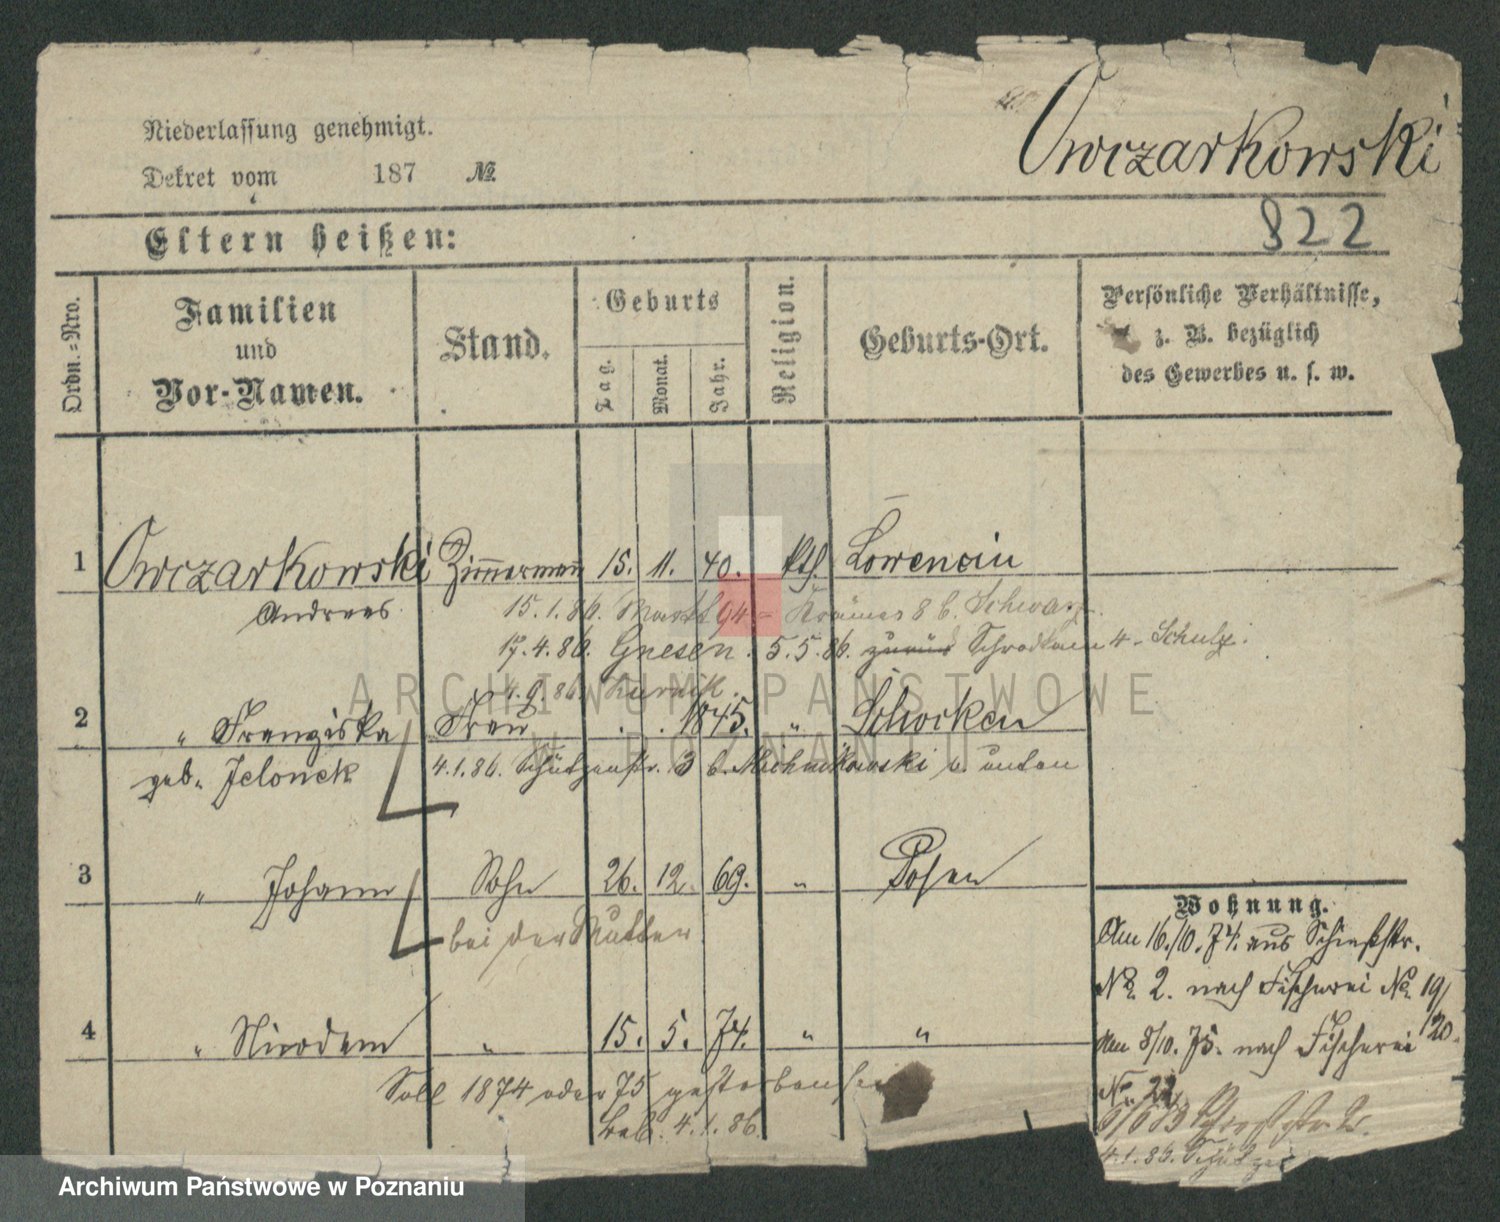 Niederlassung genehmigt.
Dekret vom 187 №
Owczarkowski
822
Eltern heißen:
Ordn.-Nro.
Familien
und
Vor-Namen.
Stand.
Geburts
Tag.
Monat.
Jahr.
Religion.
Geburts-Ort.
Persönliche Verhältnisse,
z. B. bezüglich
des Gewerbes u. s. w.
1 Owczarkowski Zimmermann 15. 11. 40. kth. Lowencin
Andreas
15.1.86. Markt 94 - Krämer 8 b. Schwarz.
17.4.86. Gnesen. 5.5.86. zurück Schrodka 4 - Schulz.
4.9.86. Kurnik.
2 " Franziska Frau . . 1845. " Schocken
geb. Jelonek 4.1.86. Schützenstr. 3 b. u. unten
3 " Johann Sohn 26. 12. 69. " Posen
bei der Mutter
4 " Nicodem " 15. 5. 74. " "
Soll 1874 oder 75 gestorben sein
4.1.86.
Wohnung.
Am 16./10. 74. aus Schießstr.
№ 2. nach Fischerei № 19/20.
Am 8/10. 75. nach Fischerei
№ 22
4.1.86.
ARCHIWUM PAŃSTWOWE
W POZNANIU
Archiwum Państwowe w Poznaniu